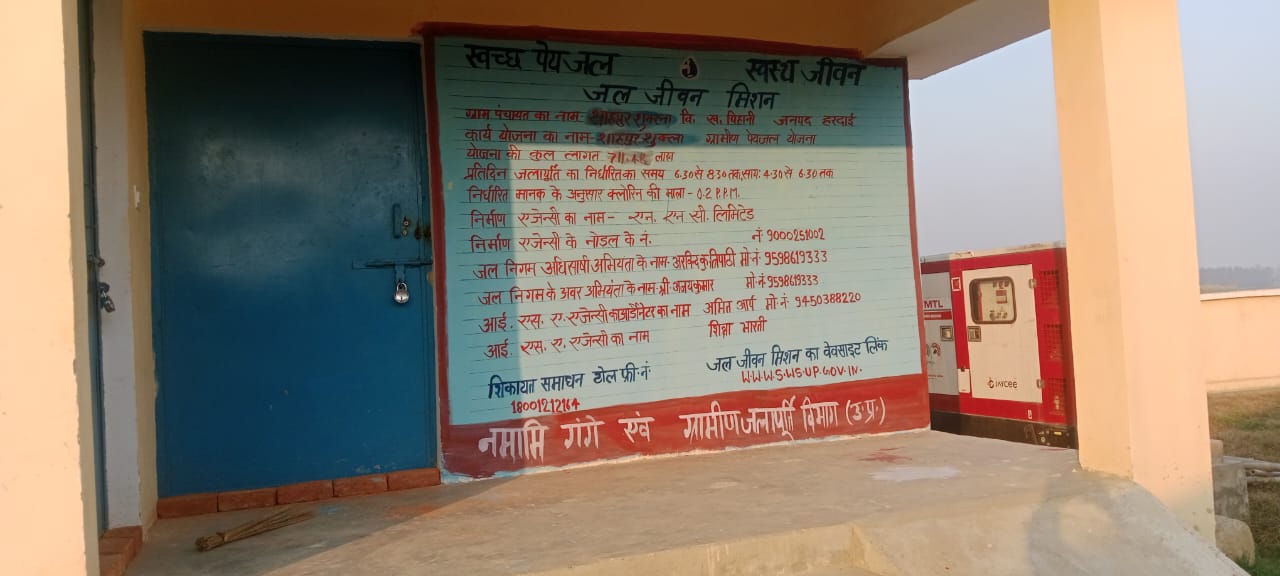 स्वच्छ पेयजल स्वस्थ जीवन
जल जीवन मिशन
ग्राम पंचायत का नाम- शाहपुर शुक्ला वि. ख. पिहानी जनपद हरदोई
कार्य योजना का नाम- शाहपुर शुक्ला ग्रामीण पेयजल योजना
योजना की कुल लागत लाख
प्रतिदिन जलापूर्ति का निर्धारित का समय 6.30 से 8.30 तक, सायः 4.30 से 6.30 तक
निर्धारित मानक के अनुसार क्लोरिन की मात्रा - 0.2 P.P.M.
निर्माण एजेन्सी का नाम - एन. एन सी. लिमिटेड
निर्माण एजेन्सी के नोडल के नं. नं 9000251002
जल निगम अधिसाषी अभियंता के नाम- अरविन्द कु त्रिपाठी मो नं 9598619333
जल निगम के अवर अभियंता के नाम- श्री अजय कुमार मो नं 9598619333
आई. एस. ए. एजेन्सी का नाम अमित आर्य मो नं 9450388220
आई. एस. ए. एजेन्सी का नाम भारती
शिकायत समाधन टोल फ्री नं जल जीवन मिशन का वेवसाइट लिंक
18001212164 W.W.W.S.WS.UP.GOV.IN.
नमामि गंगे एवं ग्रामीण जलापूर्ति विभाग (उ.प्र.)
MTL
JAYCEE